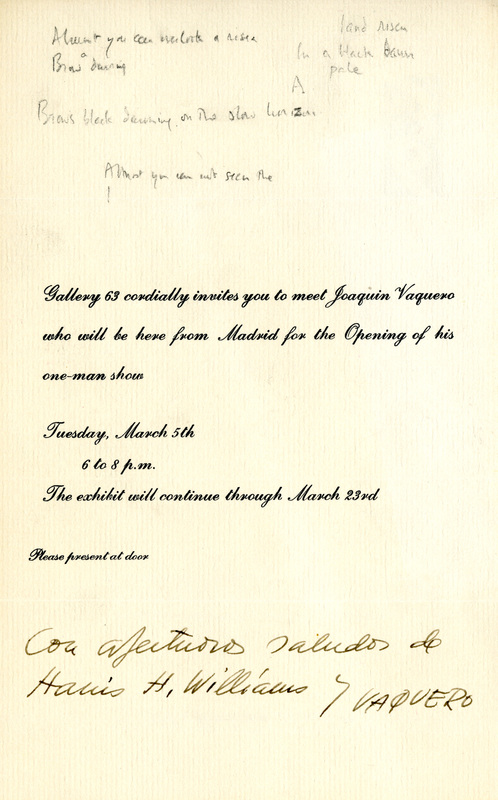 Almost you can overlook a risen
land risen
In a black dawn
pale
A
black dawning, on the slow horizon
Almost you can not seen the
!
Gallery 63 cordially invites you to meet Joaquin Vaquero
who will be here from Madrid for the Opening of his
one-man show
Tuesday, March 5th
6 to 8 p.m.
The exhibit will continue through March 23rd
Please present at door
Con afectuosos saludos de
Harris H. Williams y VAQUERO